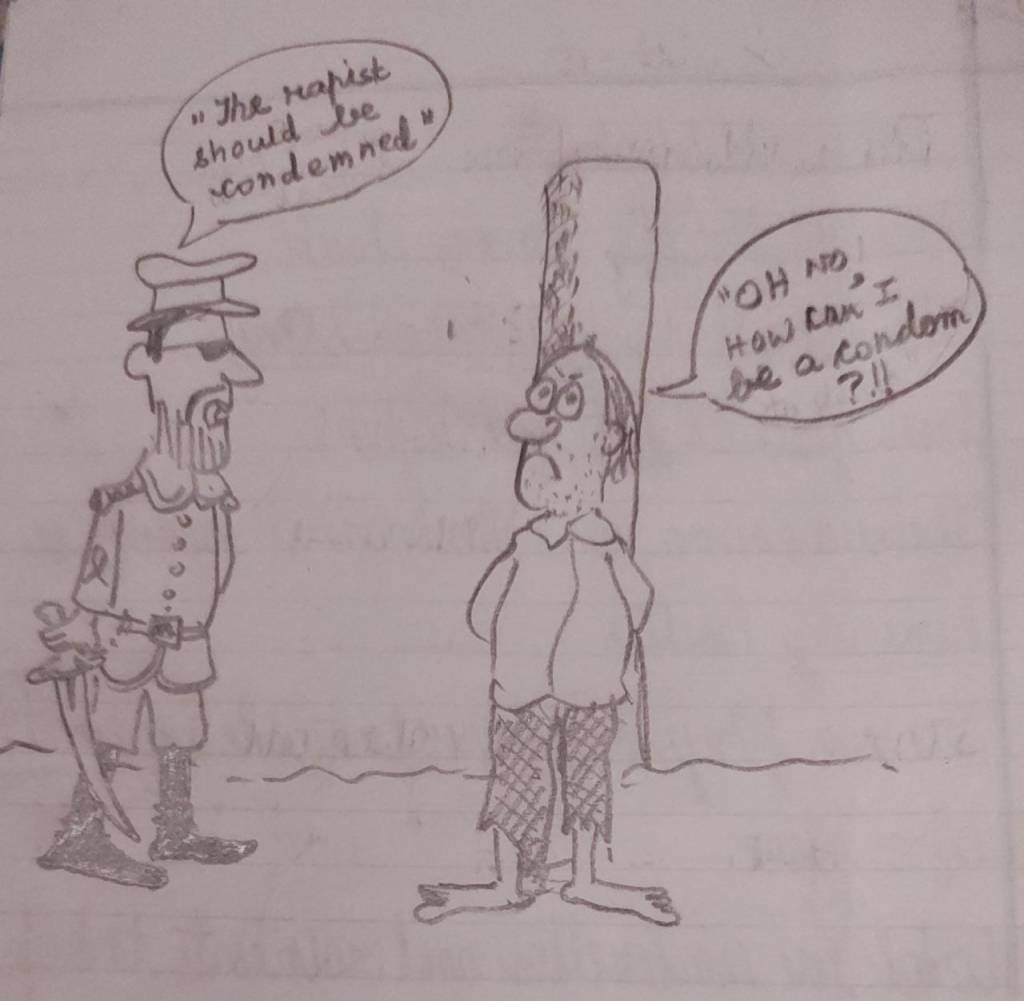 "The rapist
should be
condemned"
"OH NO,
HOW CAN I
be a condom
?!!